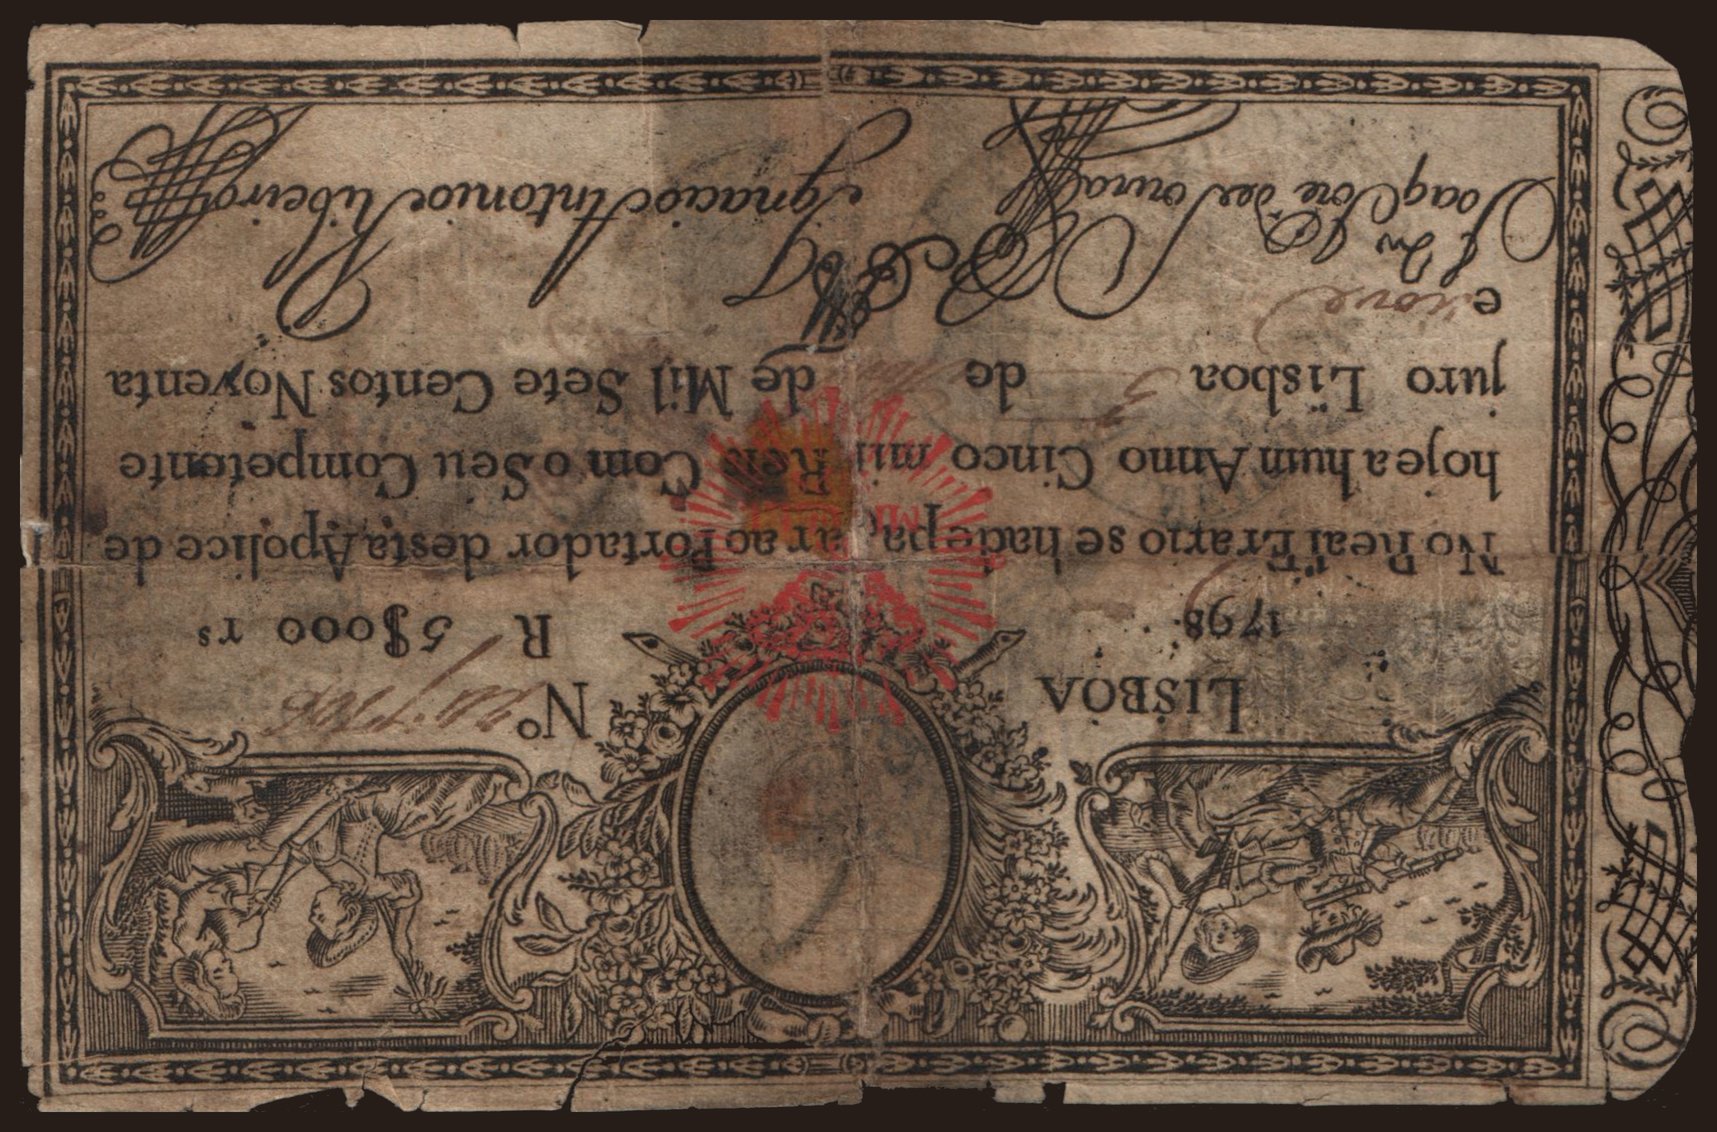 LISBOA Nº
1798. R 5$000 rs
No Real Erario se hadepagar ao Portador desta Apolice de
hoje a hum Anno Cinco mil Reis Com o Seu Competente
juro Lisboa 5 de de Mil Sete Centos Noventa
e nove
Ignacio Antonio Ribeiro